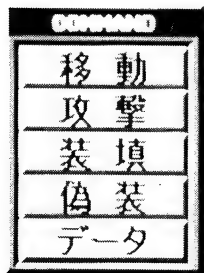 移動
攻撃
装填
偽装
データ